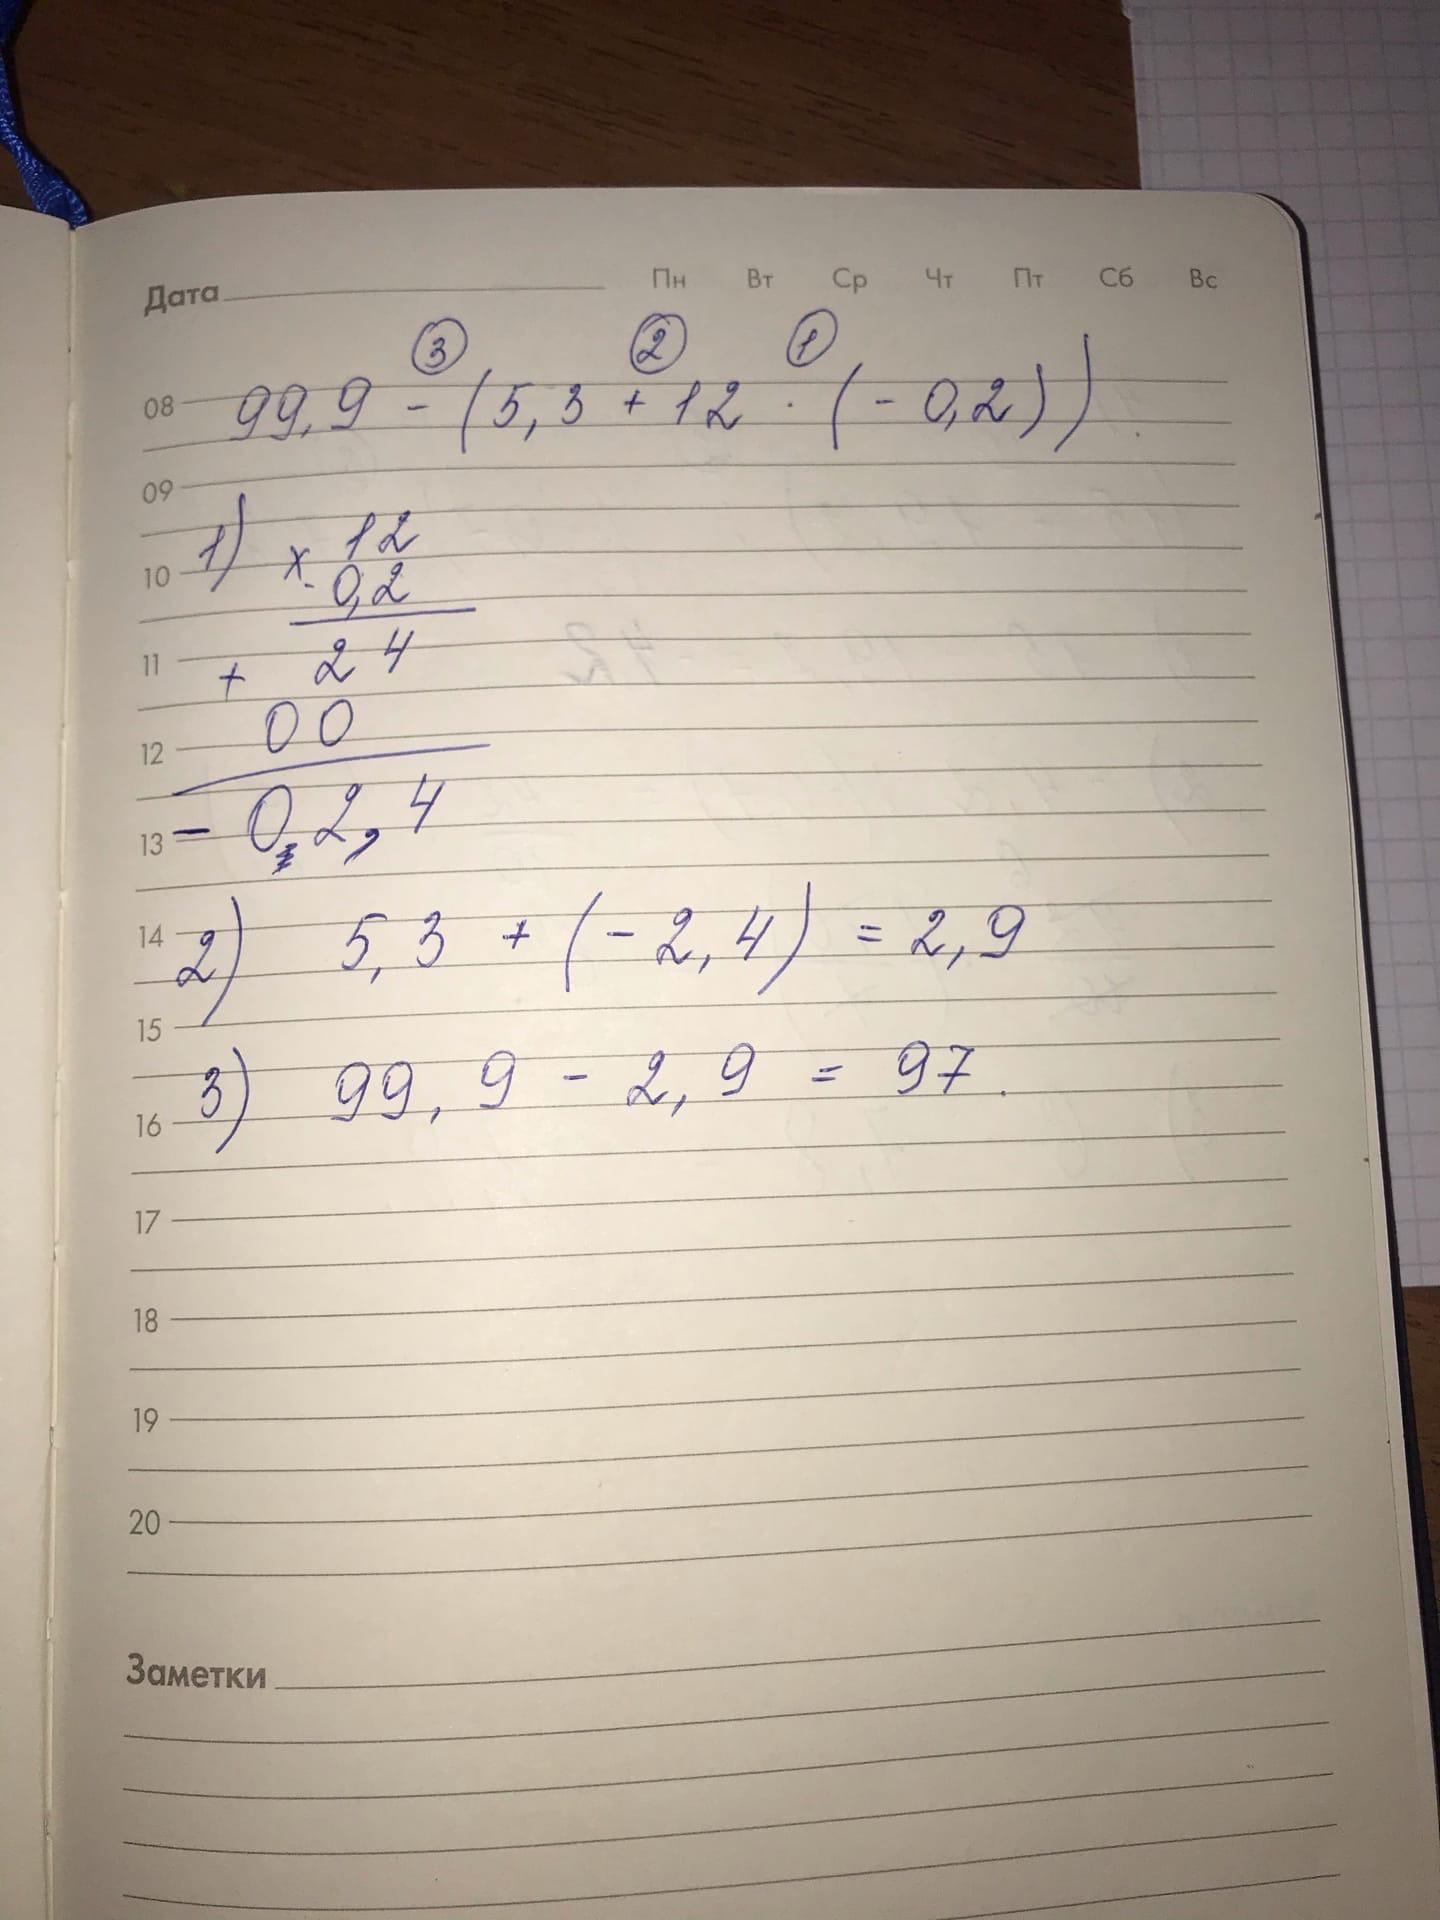 Дата Пн Вт Ср Чт Пт Сб Вс
3 2 1
08 99,9 - (5,3 + 12 · (- 0,2))
09
1) x 12
10 - 0,2
11 + 24
12 00
13 - 0 2,4
14 2) 5,3 + (- 2,4) = 2,9
15
3) 99,9 - 2,9 = 97.
16
17
18
19
20
Заметки